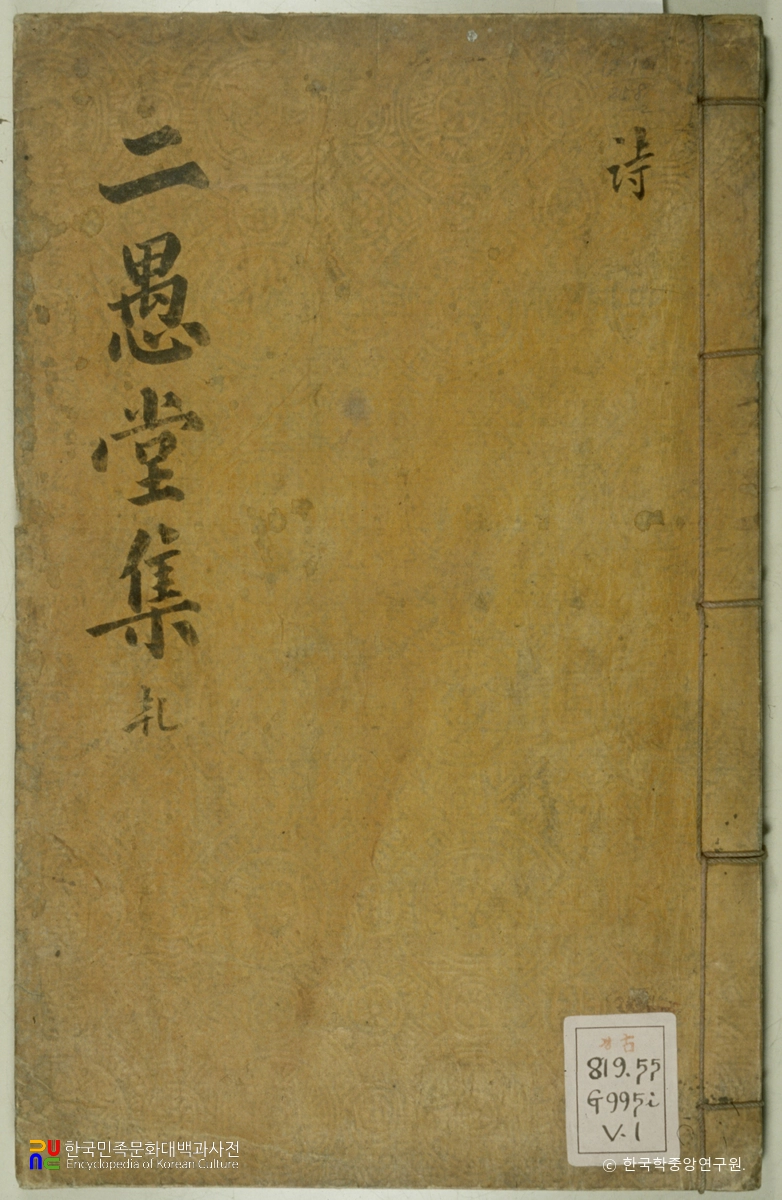 詩
二愚堂集
819.55
G995i
V.1
한국민족문화대백과사전
Encyclopedia of Korean Culture
© 한국학중앙연구원.